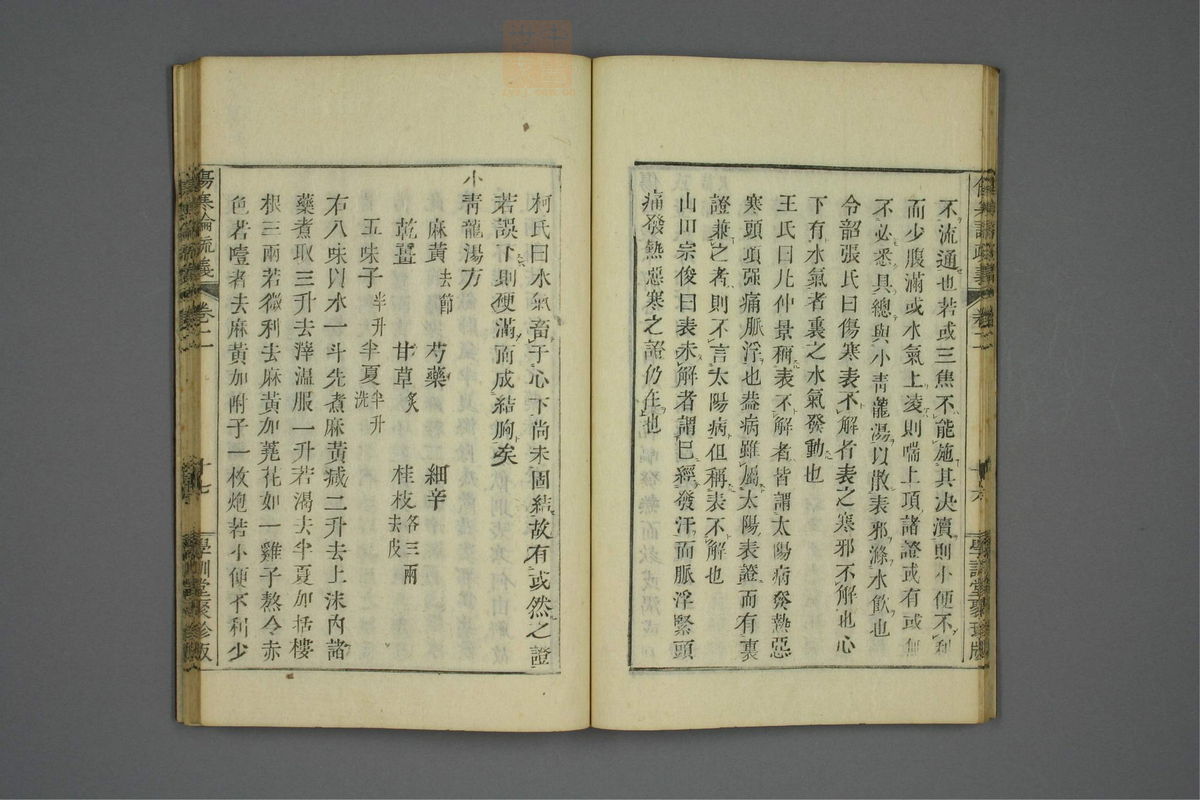 不流通也若或三焦不能施其决瀆則小便不利
而少腹滿或水氣上凌則喘上項諸證或有或無
不必悉具總與小青龍湯以散表邪滌水飲也
令韶張氏曰傷寒表不解者表之寒邪不解也心
下有水氣者裏之水氣發動也
王氏曰凡仲景稱表不解者皆謂太陽病發熱惡
寒頭項强痛脈浮也葢病雖屬太陽表證而有裏
證兼之者則不言太陽病但稱表不解也
山田宗俊曰表未解者謂已經發汗而脈浮緊頭
痛發熱惡寒之證仍在也
柯氏曰水氣畜于心下尚未固結故有或然之證
若誤下則硬滿而成結胸矣
小青龍湯方
麻黃去節 芍藥 細辛
乾薑 甘草炙 桂枝各三兩去皮
五味子半升 半夏半升洗
右八味以水一斗先煮麻黃減二升去上沫內諸
藥煮取三升去滓溫服一升若渴去半夏加括樓
根三兩若微利去麻黃加蕘花如一雞子熬令赤
色若噎者去麻黃加附子一枚炮若小便不利少
傷寒論疏義 卷二 十七 學訓堂聚珍版